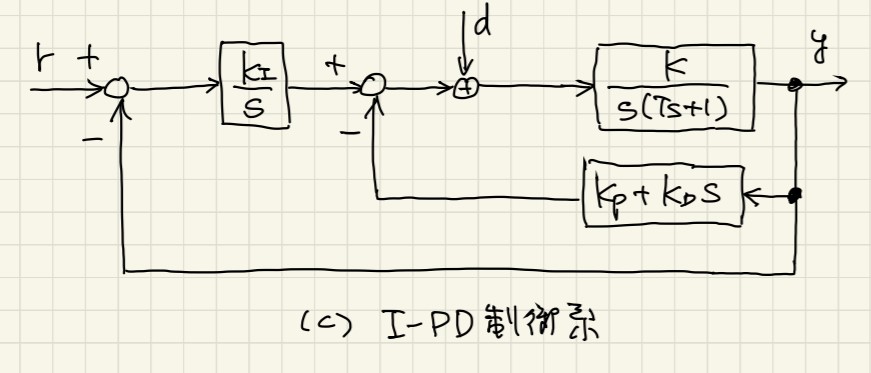 r + − k_I/s + − d + K/(s(Ts+1)) y
k_p + k_D s
(c) I-PD制御系